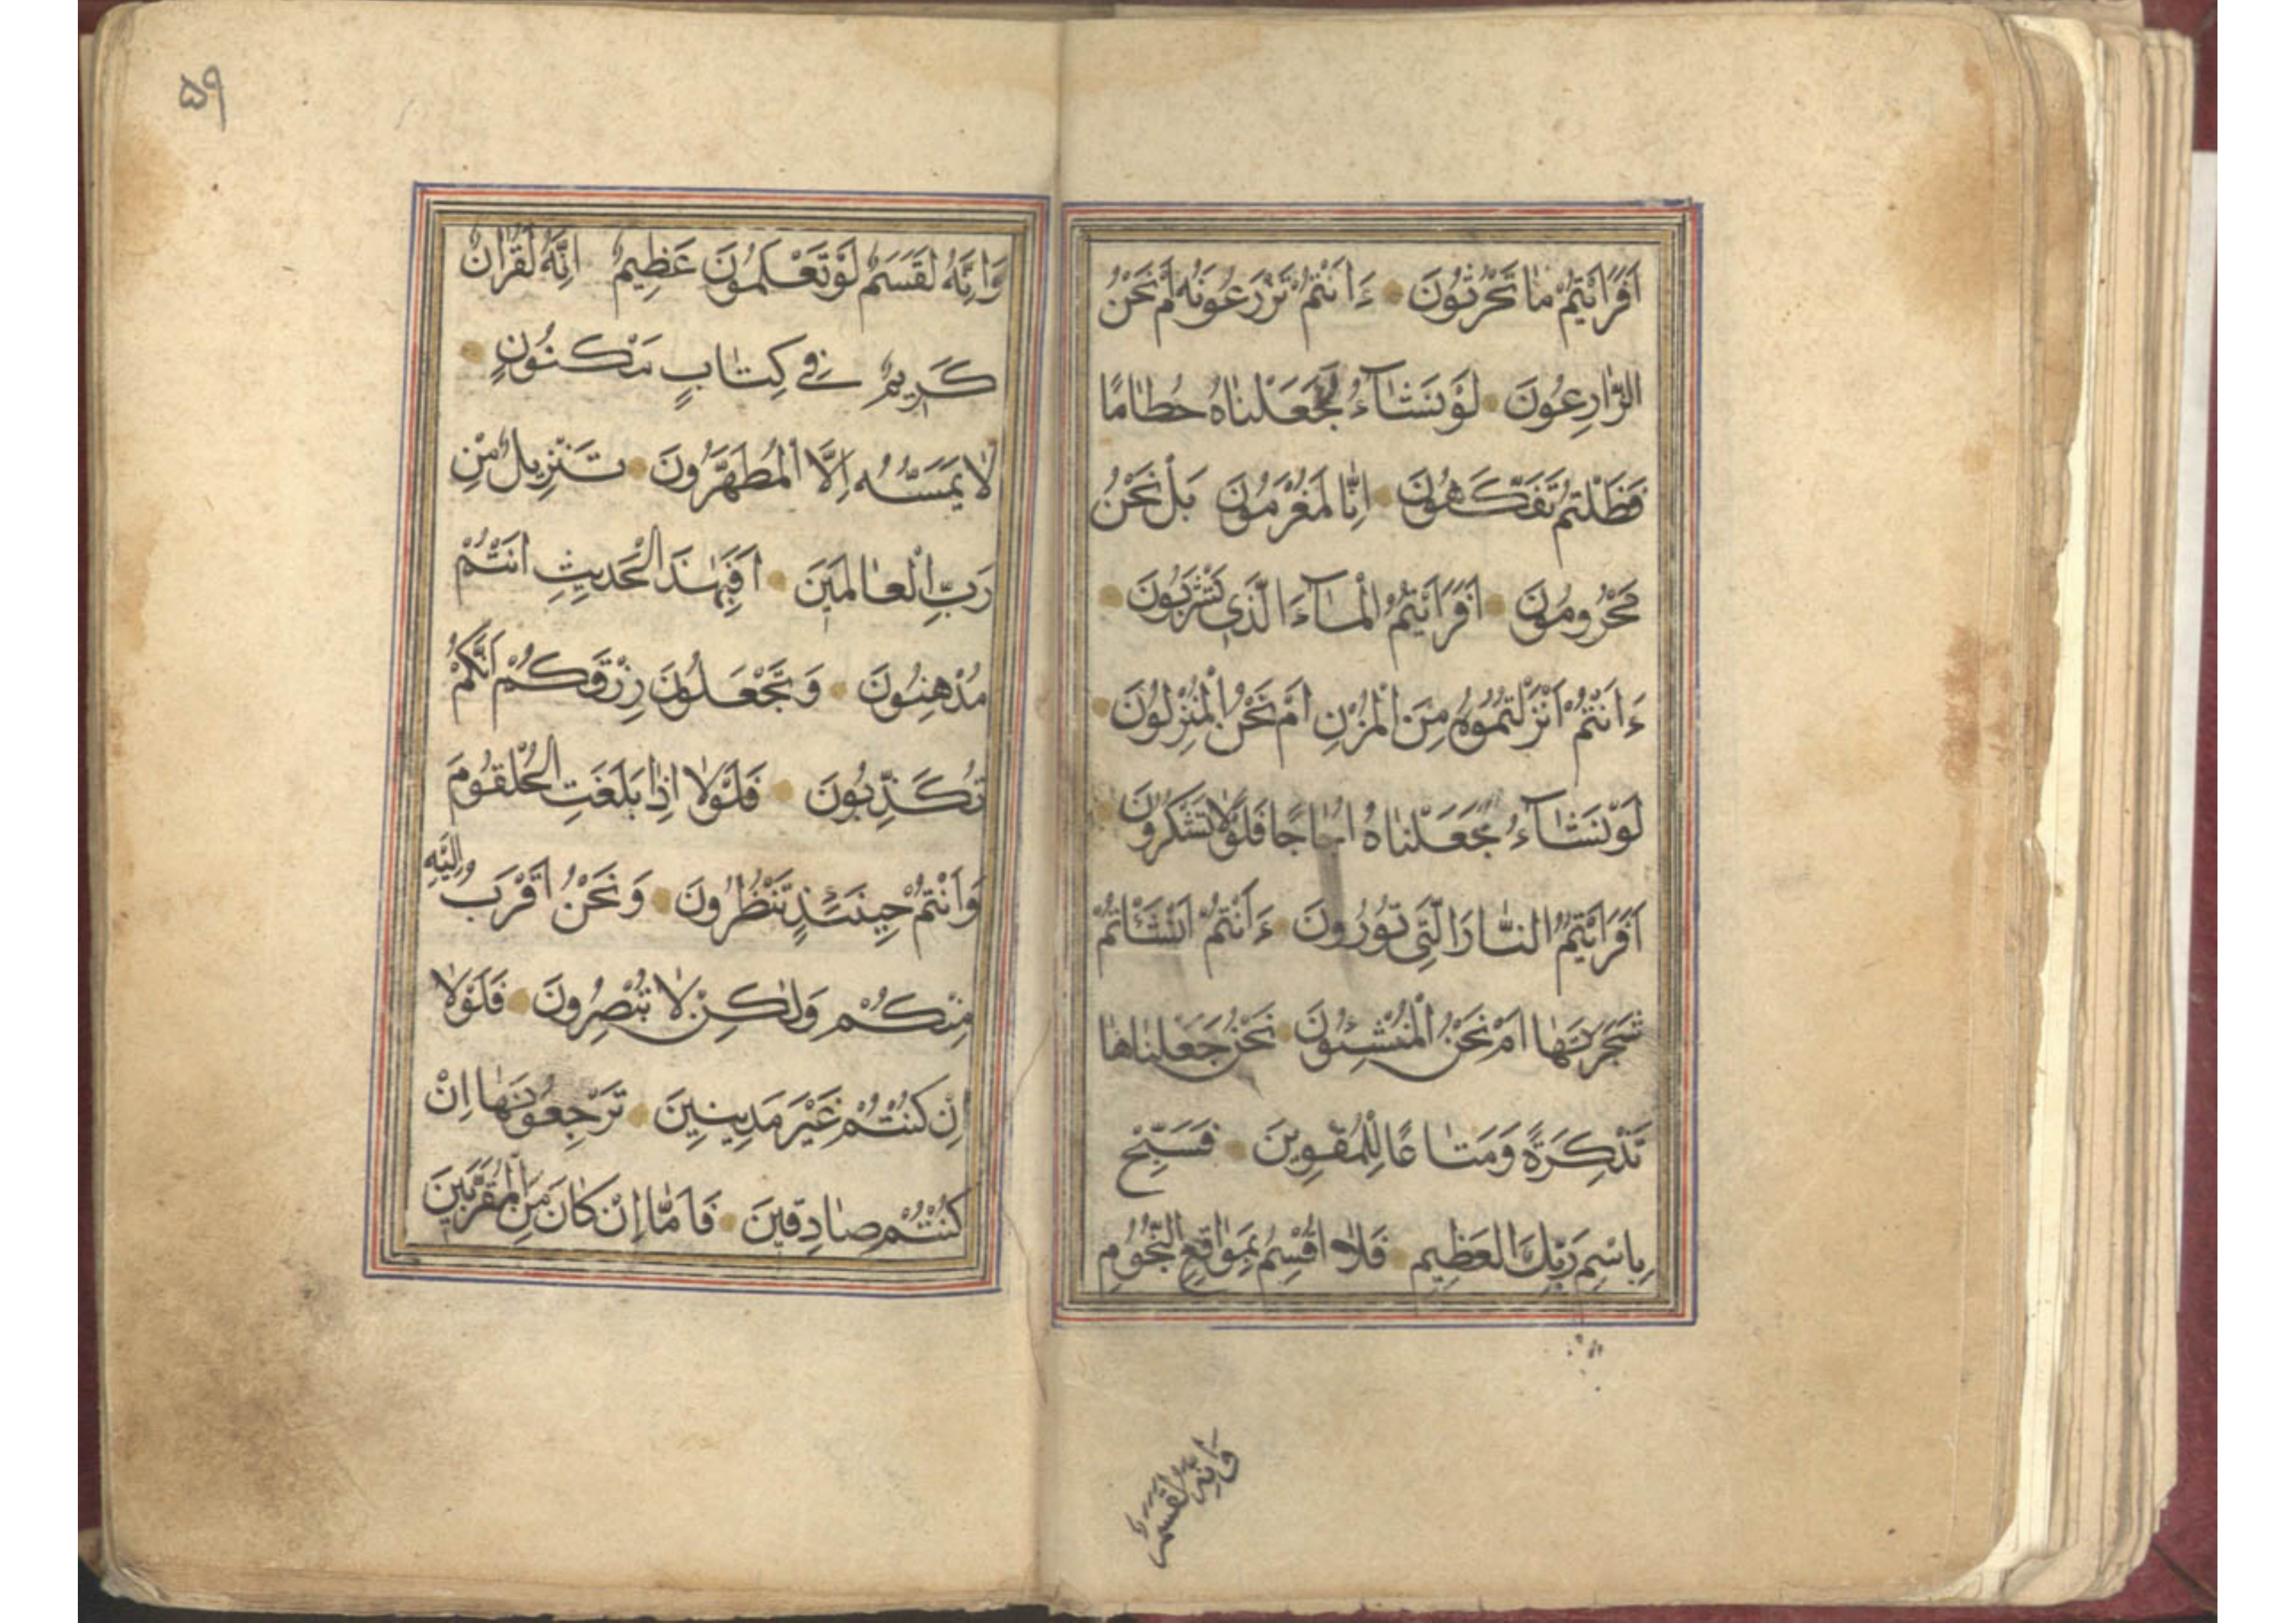 اَفَرَاَيْتُمْ مٰا تَحْرُثُونَ ءَاَنْتُمْ تَزْرَعُونَهُ اَمْ نَحْنُ
الزّٰارِعُونَ لَوْ نَشٰآءُ لَجَعَلْنٰاهُ حُطٰامًا
فَظَلْتُمْ تَفَكَّهُونَ اِنّٰا لَمُغْرَمُونَ بَلْ نَحْنُ
مَحْرُومُونَ اَفَرَاَيْتُمُ الْمٰآءَ الَّذِي تَشْرَبُونَ
ءَاَنْتُمْ اَنْزَلْتُمُوهُ مِنَ الْمُزْنِ اَمْ نَحْنُ الْمُنْزِلُونَ
لَوْ نَشٰآءُ جَعَلْنٰاهُ اُجٰاجًا فَلَوْلاٰ تَشْكُرُونَ
اَفَرَاَيْتُمُ النّٰارَ الَّتِي تُورُونَ ءَاَنْتُمْ اَنْشَأْتُمْ
شَجَرَتَهٰا اَمْ نَحْنُ الْمُنْشِئُونَ نَحْنُ جَعَلْنٰاهٰا
تَذْكِرَةً وَمَتٰاعًا لِلْمُقْوِينَ فَسَبِّحْ
بِاسْمِ رَبِّكَ الْعَظِيمِ فَلاٰ اُقْسِمُ بِمَوٰاقِعِ النُّجُومِ
وَاِنَّهُ لَقَسَمٌ
۵۹
وَاِنَّهُ لَقَسَمٌ لَوْ تَعْلَمُونَ عَظِيمٌ اِنَّهُ لَقُرْاٰنٌ
كَرِيمٌ فِي كِتٰابٍ مَكْنُونٍ
لاٰ يَمَسُّهُ اِلَّا الْمُطَهَّرُونَ تَنْزِيلٌ مِنْ
رَبِّ الْعٰالَمِينَ اَفَبِهٰذَا الْحَدِيثِ اَنْتُمْ
مُدْهِنُونَ وَتَجْعَلُونَ رِزْقَكُمْ اَنَّكُمْ
تُكَذِّبُونَ فَلَوْلاٰ اِذٰا بَلَغَتِ الْحُلْقُومَ
وَاَنْتُمْ حِينَئِذٍ تَنْظُرُونَ وَنَحْنُ اَقْرَبُ اِلَيْهِ
مِنْكُمْ وَلٰكِنْ لاٰ تُبْصِرُونَ فَلَوْلاٰ
اِنْ كُنْتُمْ غَيْرَ مَدِينِينَ تَرْجِعُونَهٰا اِنْ
كُنْتُمْ صٰادِقِينَ فَاَمّٰا اِنْ كٰانَ مِنَ الْمُقَرَّبِينَ